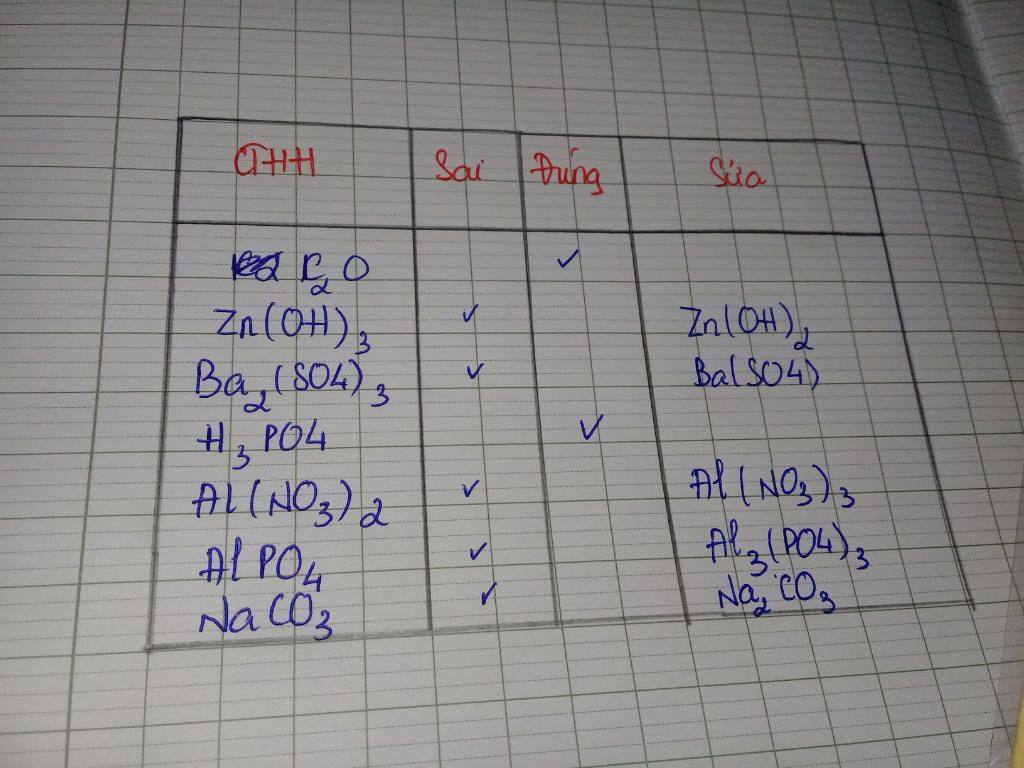 CTHH Sai Đúng Sửa
K₂O ✓
Zn(OH)₃ ✓ Zn(OH)₂
Ba₂(SO4)₃ ✓ Ba(SO4)
H₃PO4 ✓
Al(NO₃)₂ ✓ Al(NO₃)₃
AlPO₄ ✓ Al₃(PO4)₃
NaCO₃ ✓ Na₂CO₃